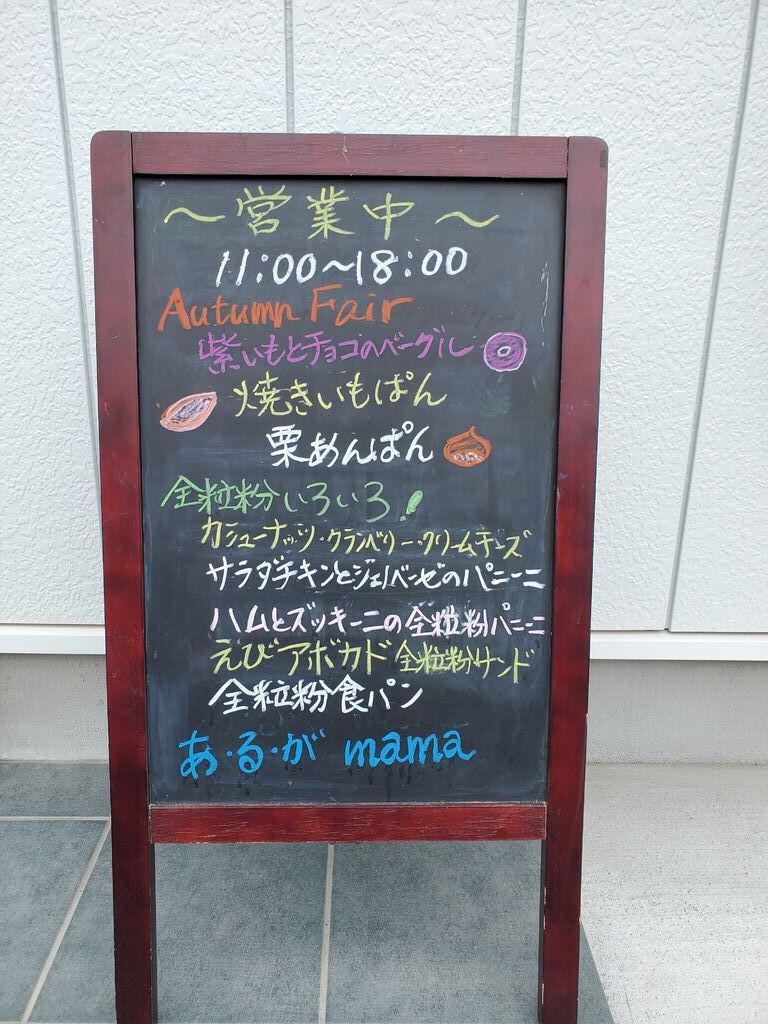 ～営業中～
11:00～18:00
Autumn Fair
紫いもとチョコのベーグル
焼きいもぱん
栗あんぱん
全粒粉いろいろ!
カシューナッツ・クランベリー・クリームチーズ
サラダチキンとジェノベーゼのパニーニ
ハムとズッキーニの全粒粉パニーニ
えびアボカド全粒粉サンド
全粒粉食パン
あ・る・が mama